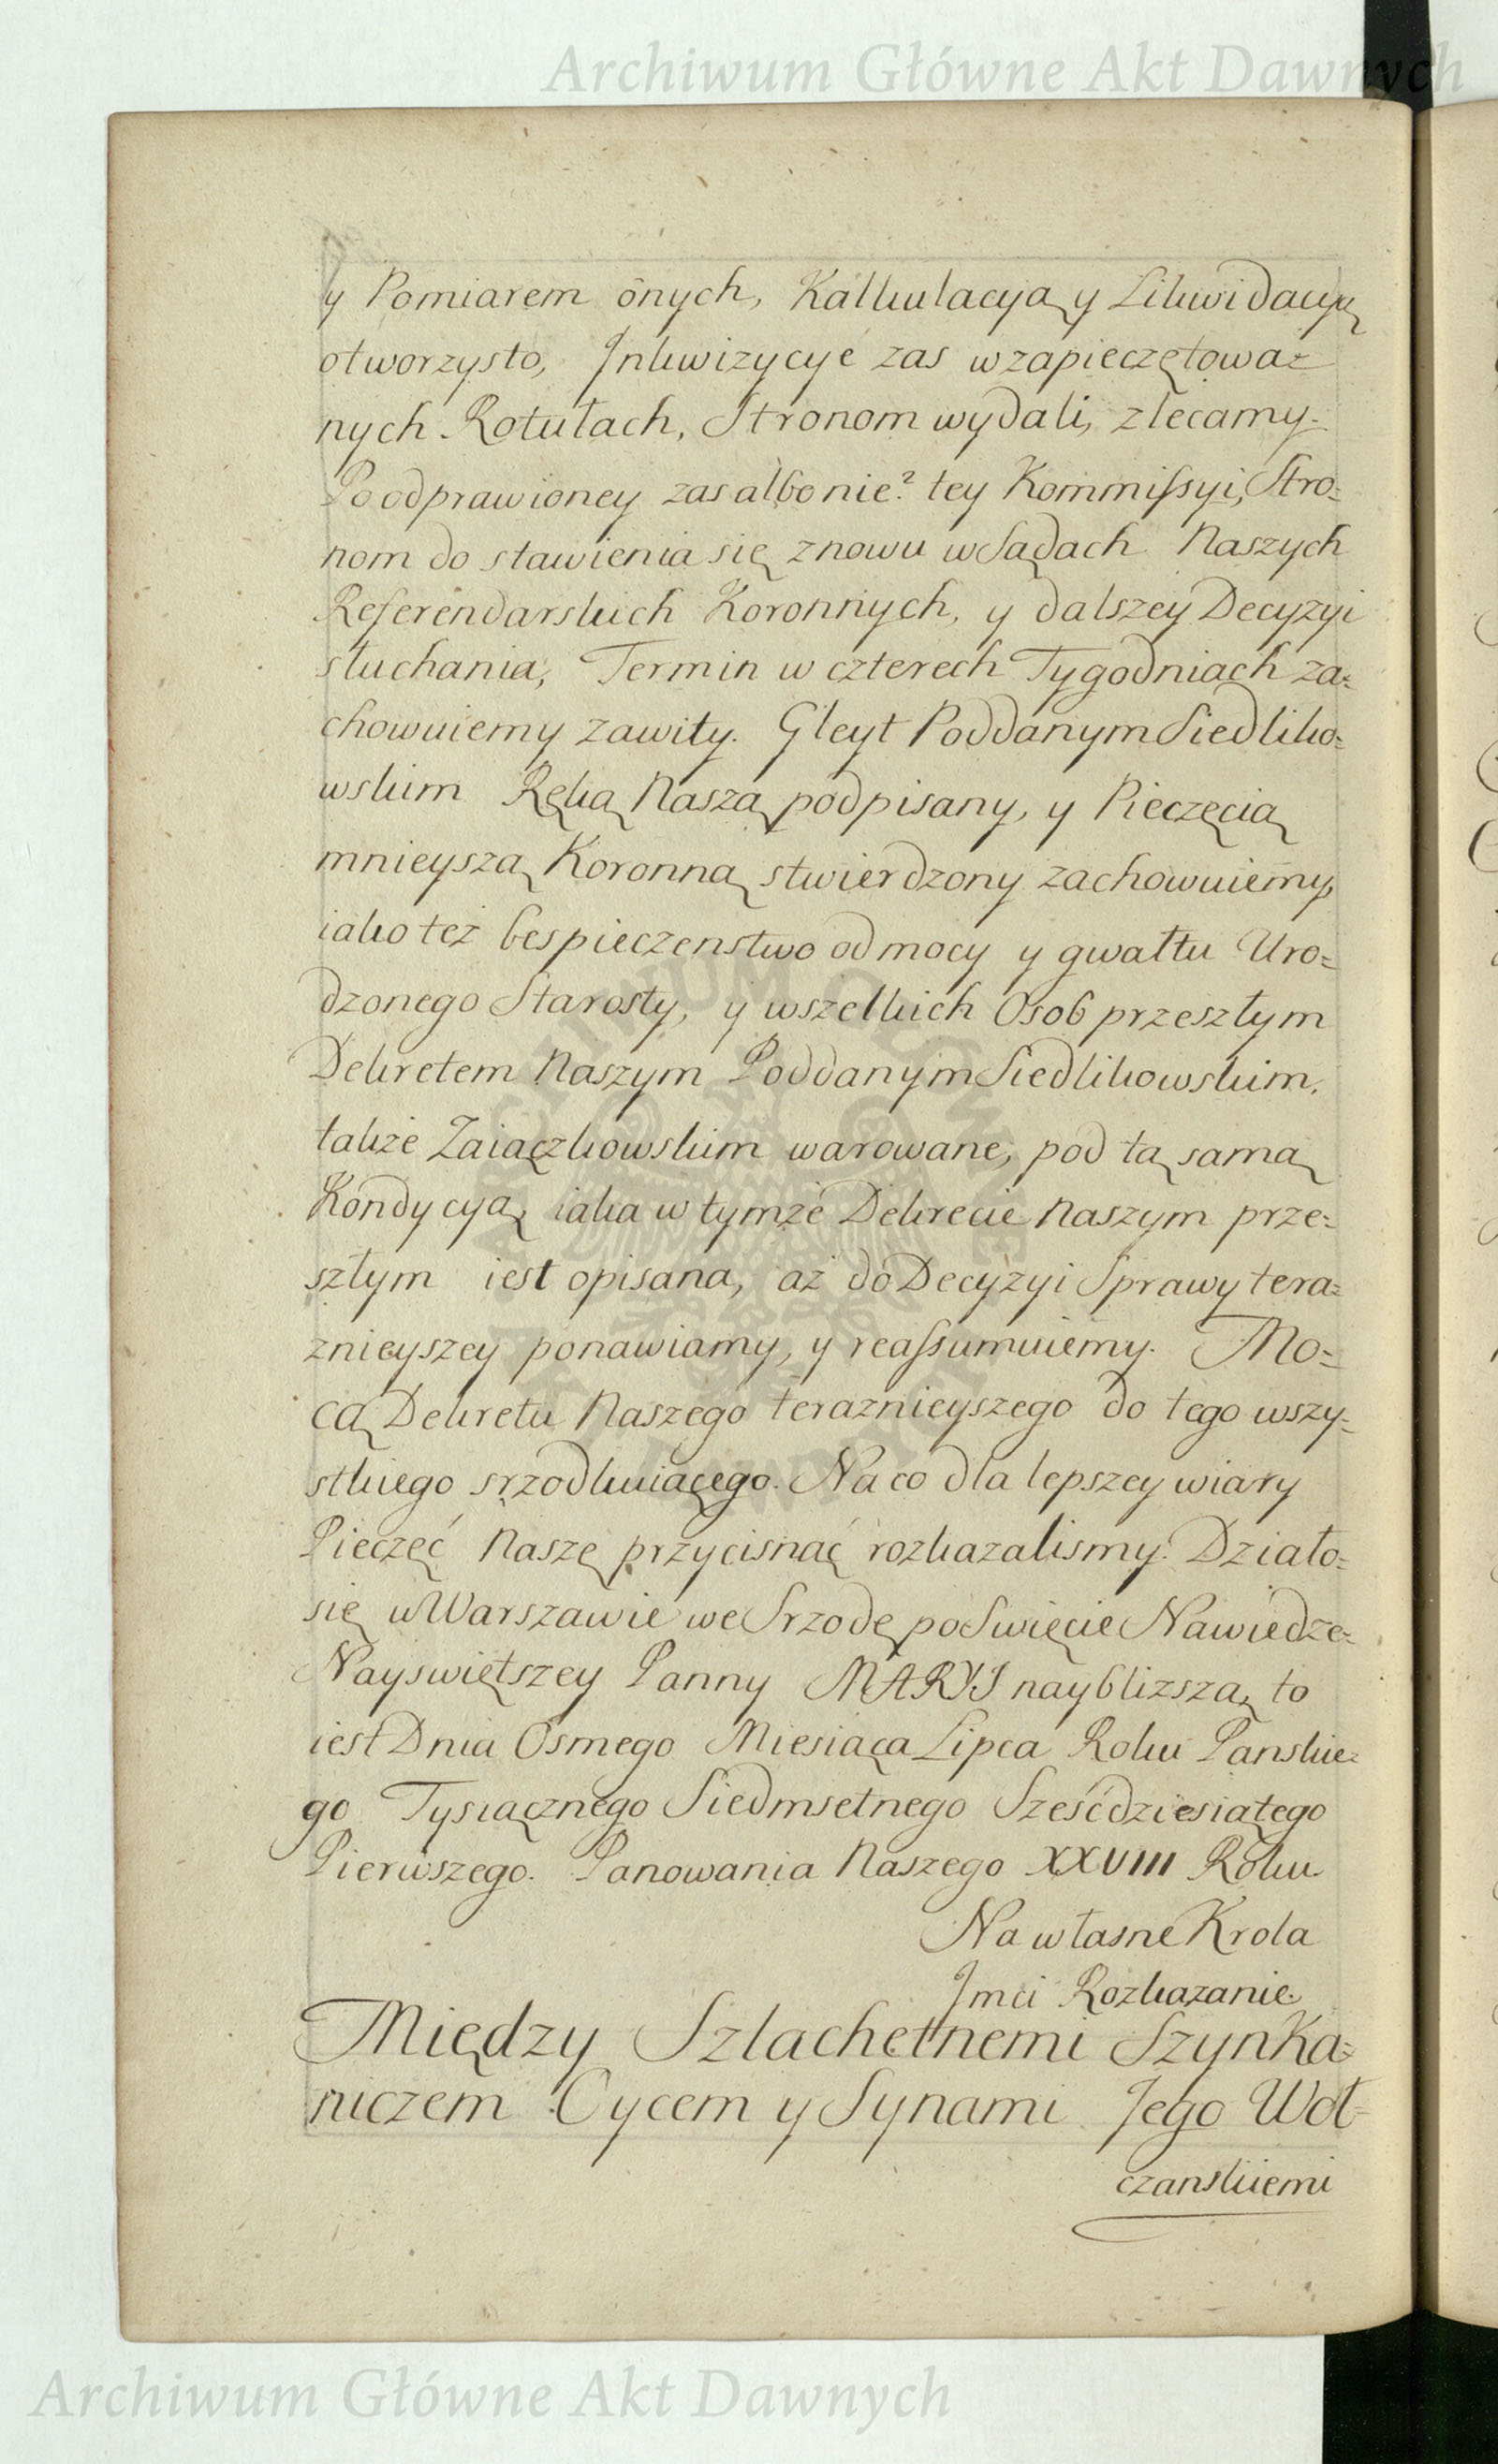 Archiwum Główne Akt Dawnych
y Pomiarem ônych, Kalkulacyą y Likwidacyą
otworzysto, Inkwizycye zas w zapieczętowa=
nych Rotułach, Stronom wydali, zlecamy.
Po odprawioney zas albo nie? tey Kommissyi, Stro=
nom do stawienia się znowu w Sądach Naszych
Referendarskich Koronnych, y dalszey Decyzyi
słuchania, Termin w czterech Tygodniach za=
chowuiemy zawity. Gleyt Poddanym Siedliko=
wskim Ręką Naszą podpisany, y Pieczęcią
mnieyszą Koronną stwierdzony zachowuiemy,
iako też bespieczenstwo od mocy y gwałtu Uro=
dzonego Starosty, y wszelkich Osob przeszłym
Dekretem Naszym Poddanym Siedlikowskim,
także Zaiączkowskim warowane, pod tą samą
Kondycyą, iaka w tymże Dekrecie Naszym prze=
szłym iest opisana, aż do Decyzyi Sprawy tera=
znieyszey ponawiamy, y reassumuiemy. Mo=
cą Dekretu Naszego teraznieyszego do tego wszy=
stkiego srzodkuiącego. Na co dla lepszey wiary
Pieczęć Naszę przycisnąć rozkazalismy. Działo=
się w Warszawie we Srzodę po Swięcie Nawiedze=
Nayswiętszey Panny MARYI naybliższą, to
iest Dnia Osmego Miesiąca Lipca Roku Panskie=
go Tysiącznego Siedmsetnego Sześćdziesiątego
Pierwszego. Panowania Naszego XXVIII Roku
Na własne Krola
Jmci Rozkazanie.
Między Szlachetnemi Szynka=
ruczem Oycem y Synami Jego Woł=
czanskiemi
Archiwum Główne Akt Dawnych